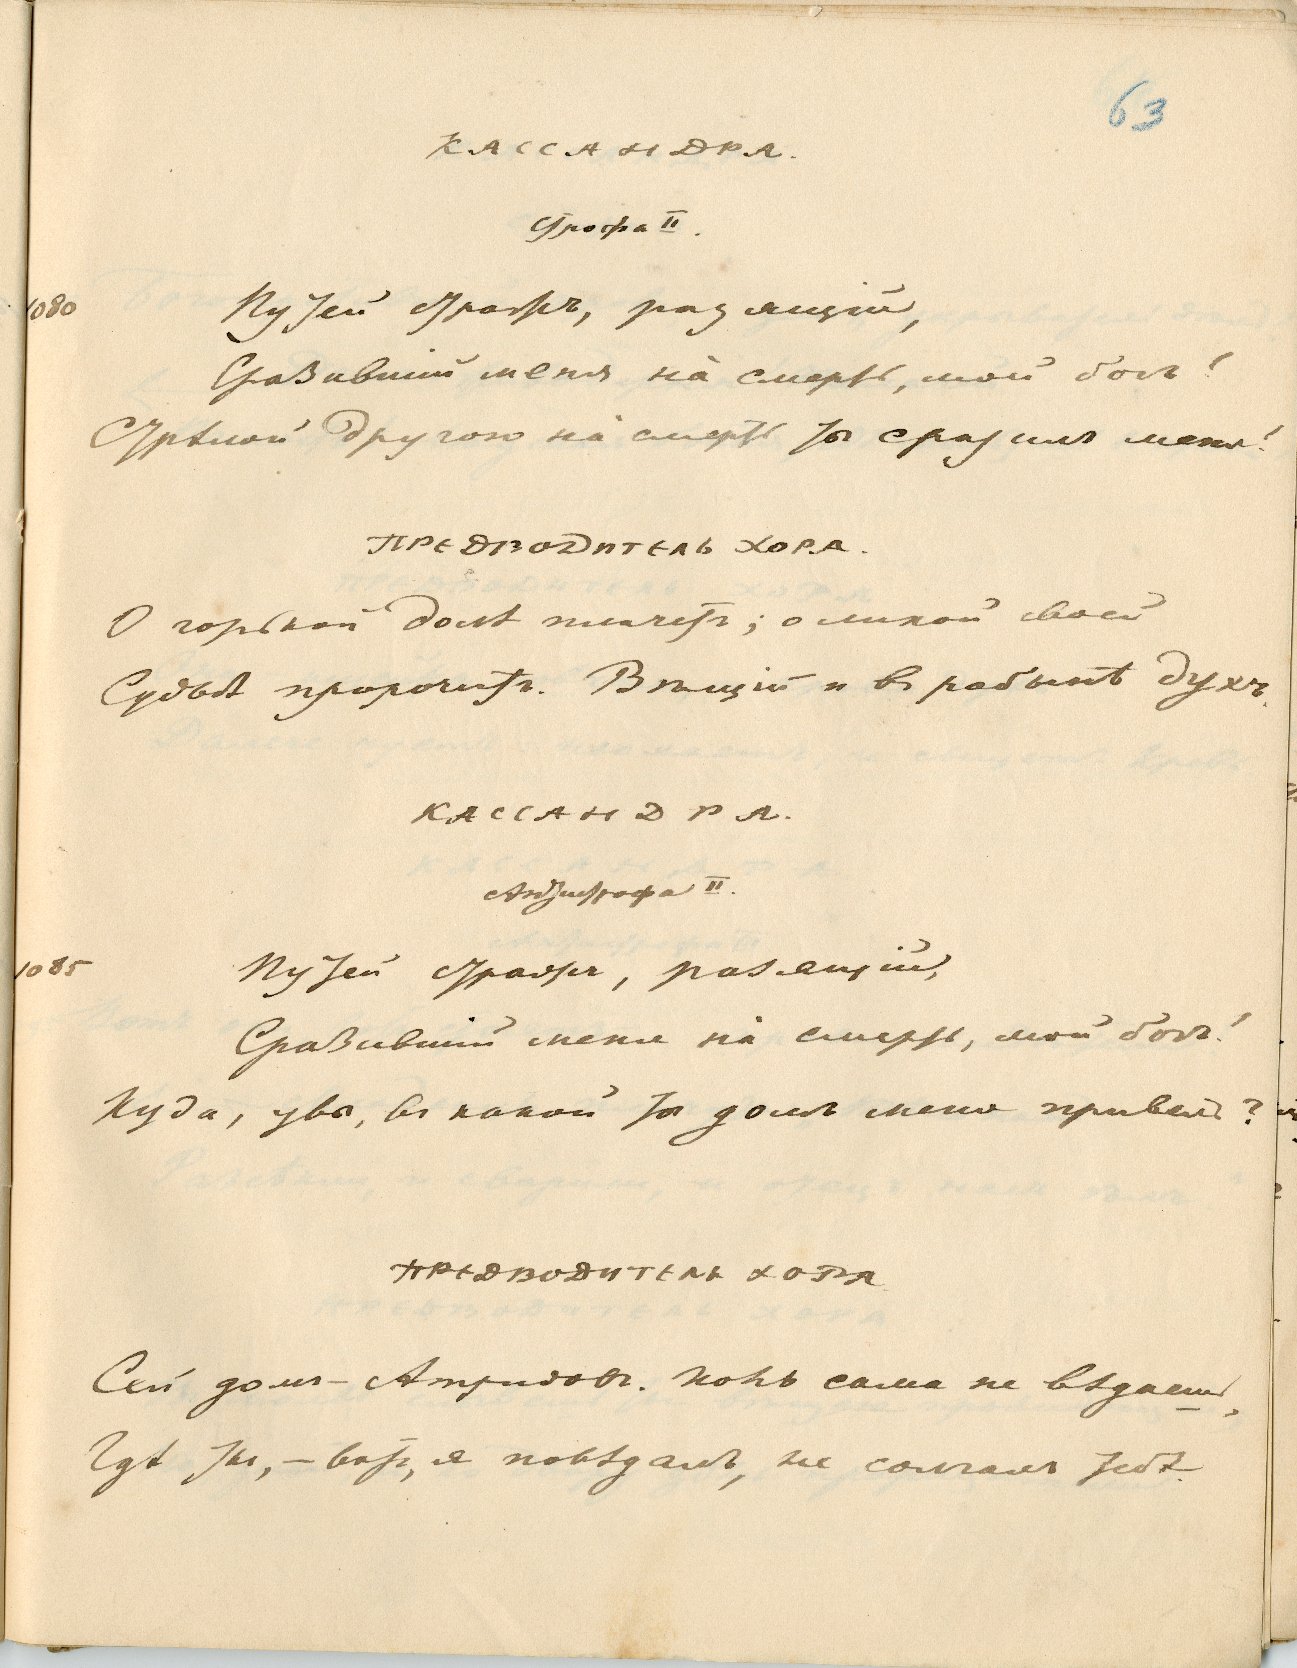 63
КАССАНДРА.
Строфа II.
1080 Путей стражъ, разящій,
Сразившій меня на̀ смерть, мой богъ!
Стрѣлой другою на̀ смерть ты сразилъ меня!
ПРЕДВОДИТЕЛЬ ХОРА.
О горькой долѣ плачетъ; о ликой своей
Судьбѣ пророчитъ. Вѣщій и въ рабынѣ духъ.
КАССАНДРА.
Антистрофа II.
1085 Путей стражъ, разящій,
Сразившій меня на̀ смерть, мой богъ!
Куда, увы, въ какой ты домъ меня привелъ?
ПРЕДВОДИТЕЛЬ ХОРА
Сей домъ – Атридовъ. Коль сама не вѣдаешь,
Гдѣ ты, – вотъ, я повѣдалъ, не солгалъ тебѣ.